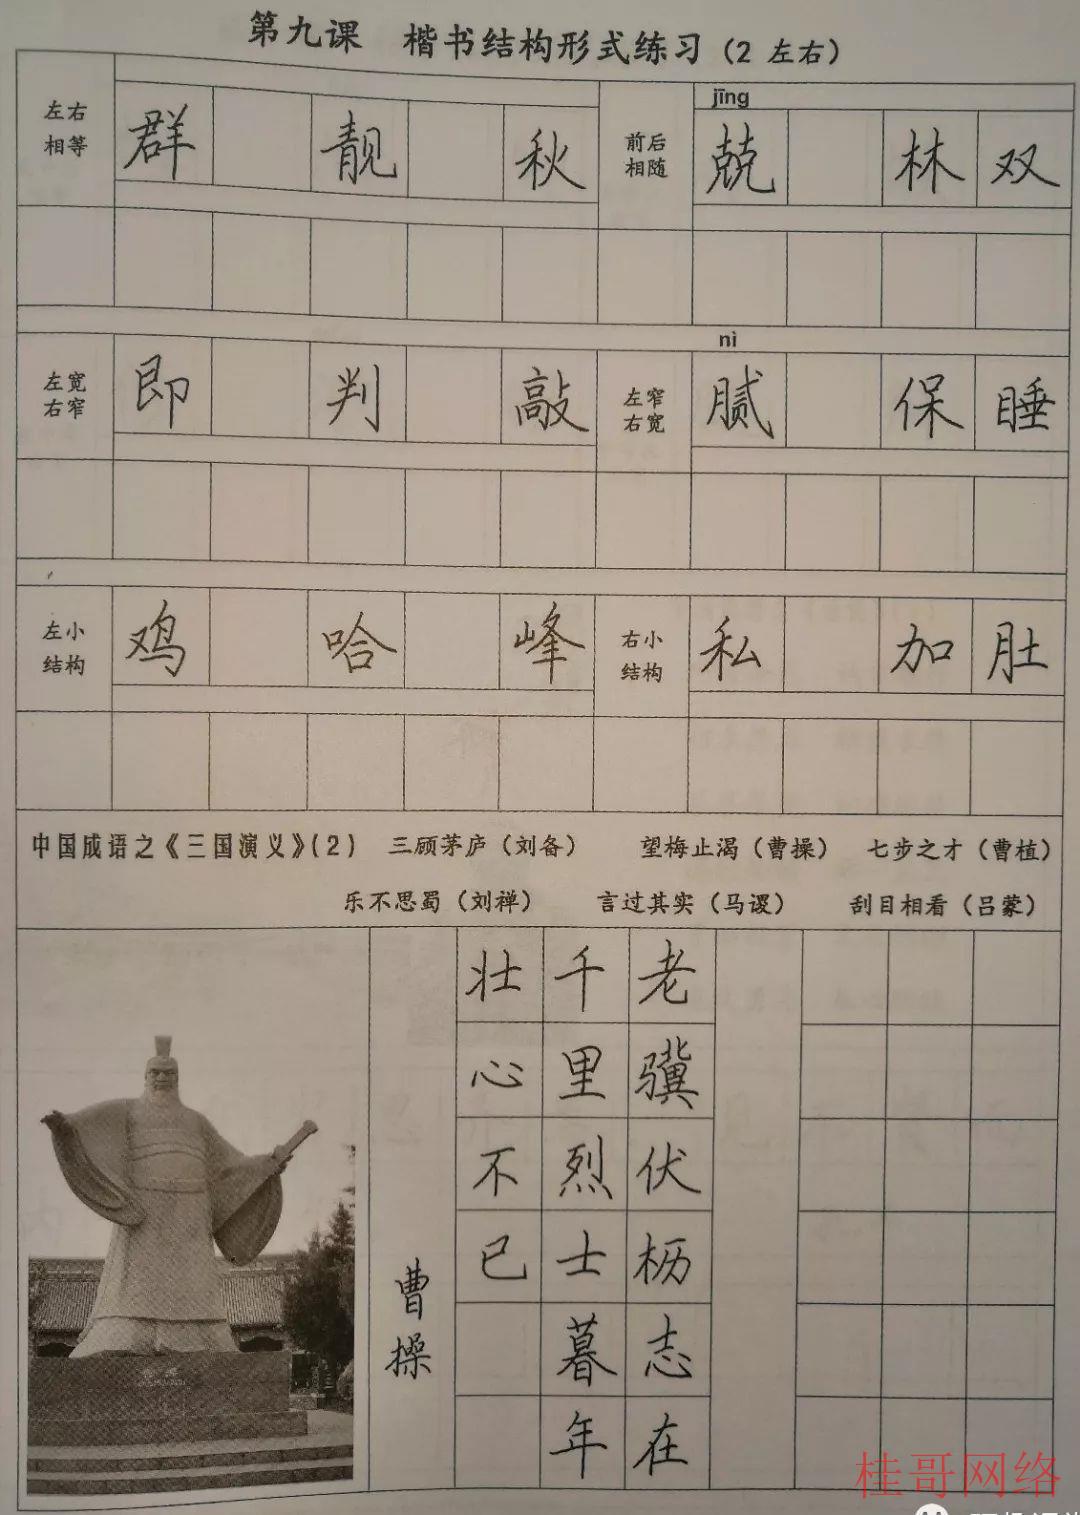 第九课 楷书结构形式练习（2 左右）
jīng
左右相等 群 靓 秋 前后相随 兢 林 双
nì
左宽右窄 即 判 敲 左窄右宽 腻 保 睡
左小结构 鸡 哈 峰 右小结构 私 加 肚
中国成语之《三国演义》（2） 三顾茅庐（刘备） 望梅止渴（曹操） 七步之才（曹植）
乐不思蜀（刘禅） 言过其实（马谡） 刮目相看（吕蒙）
老骥伏枥志在
千里烈士暮年
壮心不已
曹操
桂哥网络